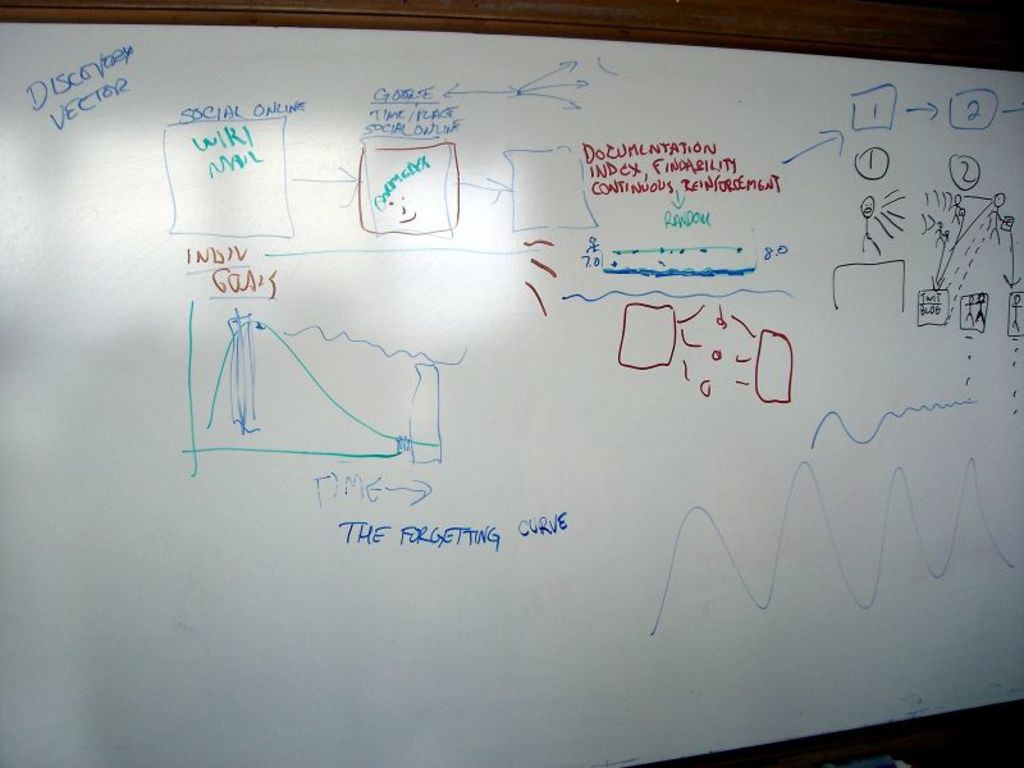 DISCOVERY
VECTOR
SOCIAL ONLINE
WIKI
MAIL
GOOGLE
TIME/PLACE
SOCIAL ONLINE
BARCAMP
DOCUMENTATION
INDEX, FINDABILITY
CONTINUOUS REINFORCEMENT
RANDOM
7.0
8.0
INDIV
GOALS
TIME
THE FORGETTING CURVE
1
2
1
2
BLOG